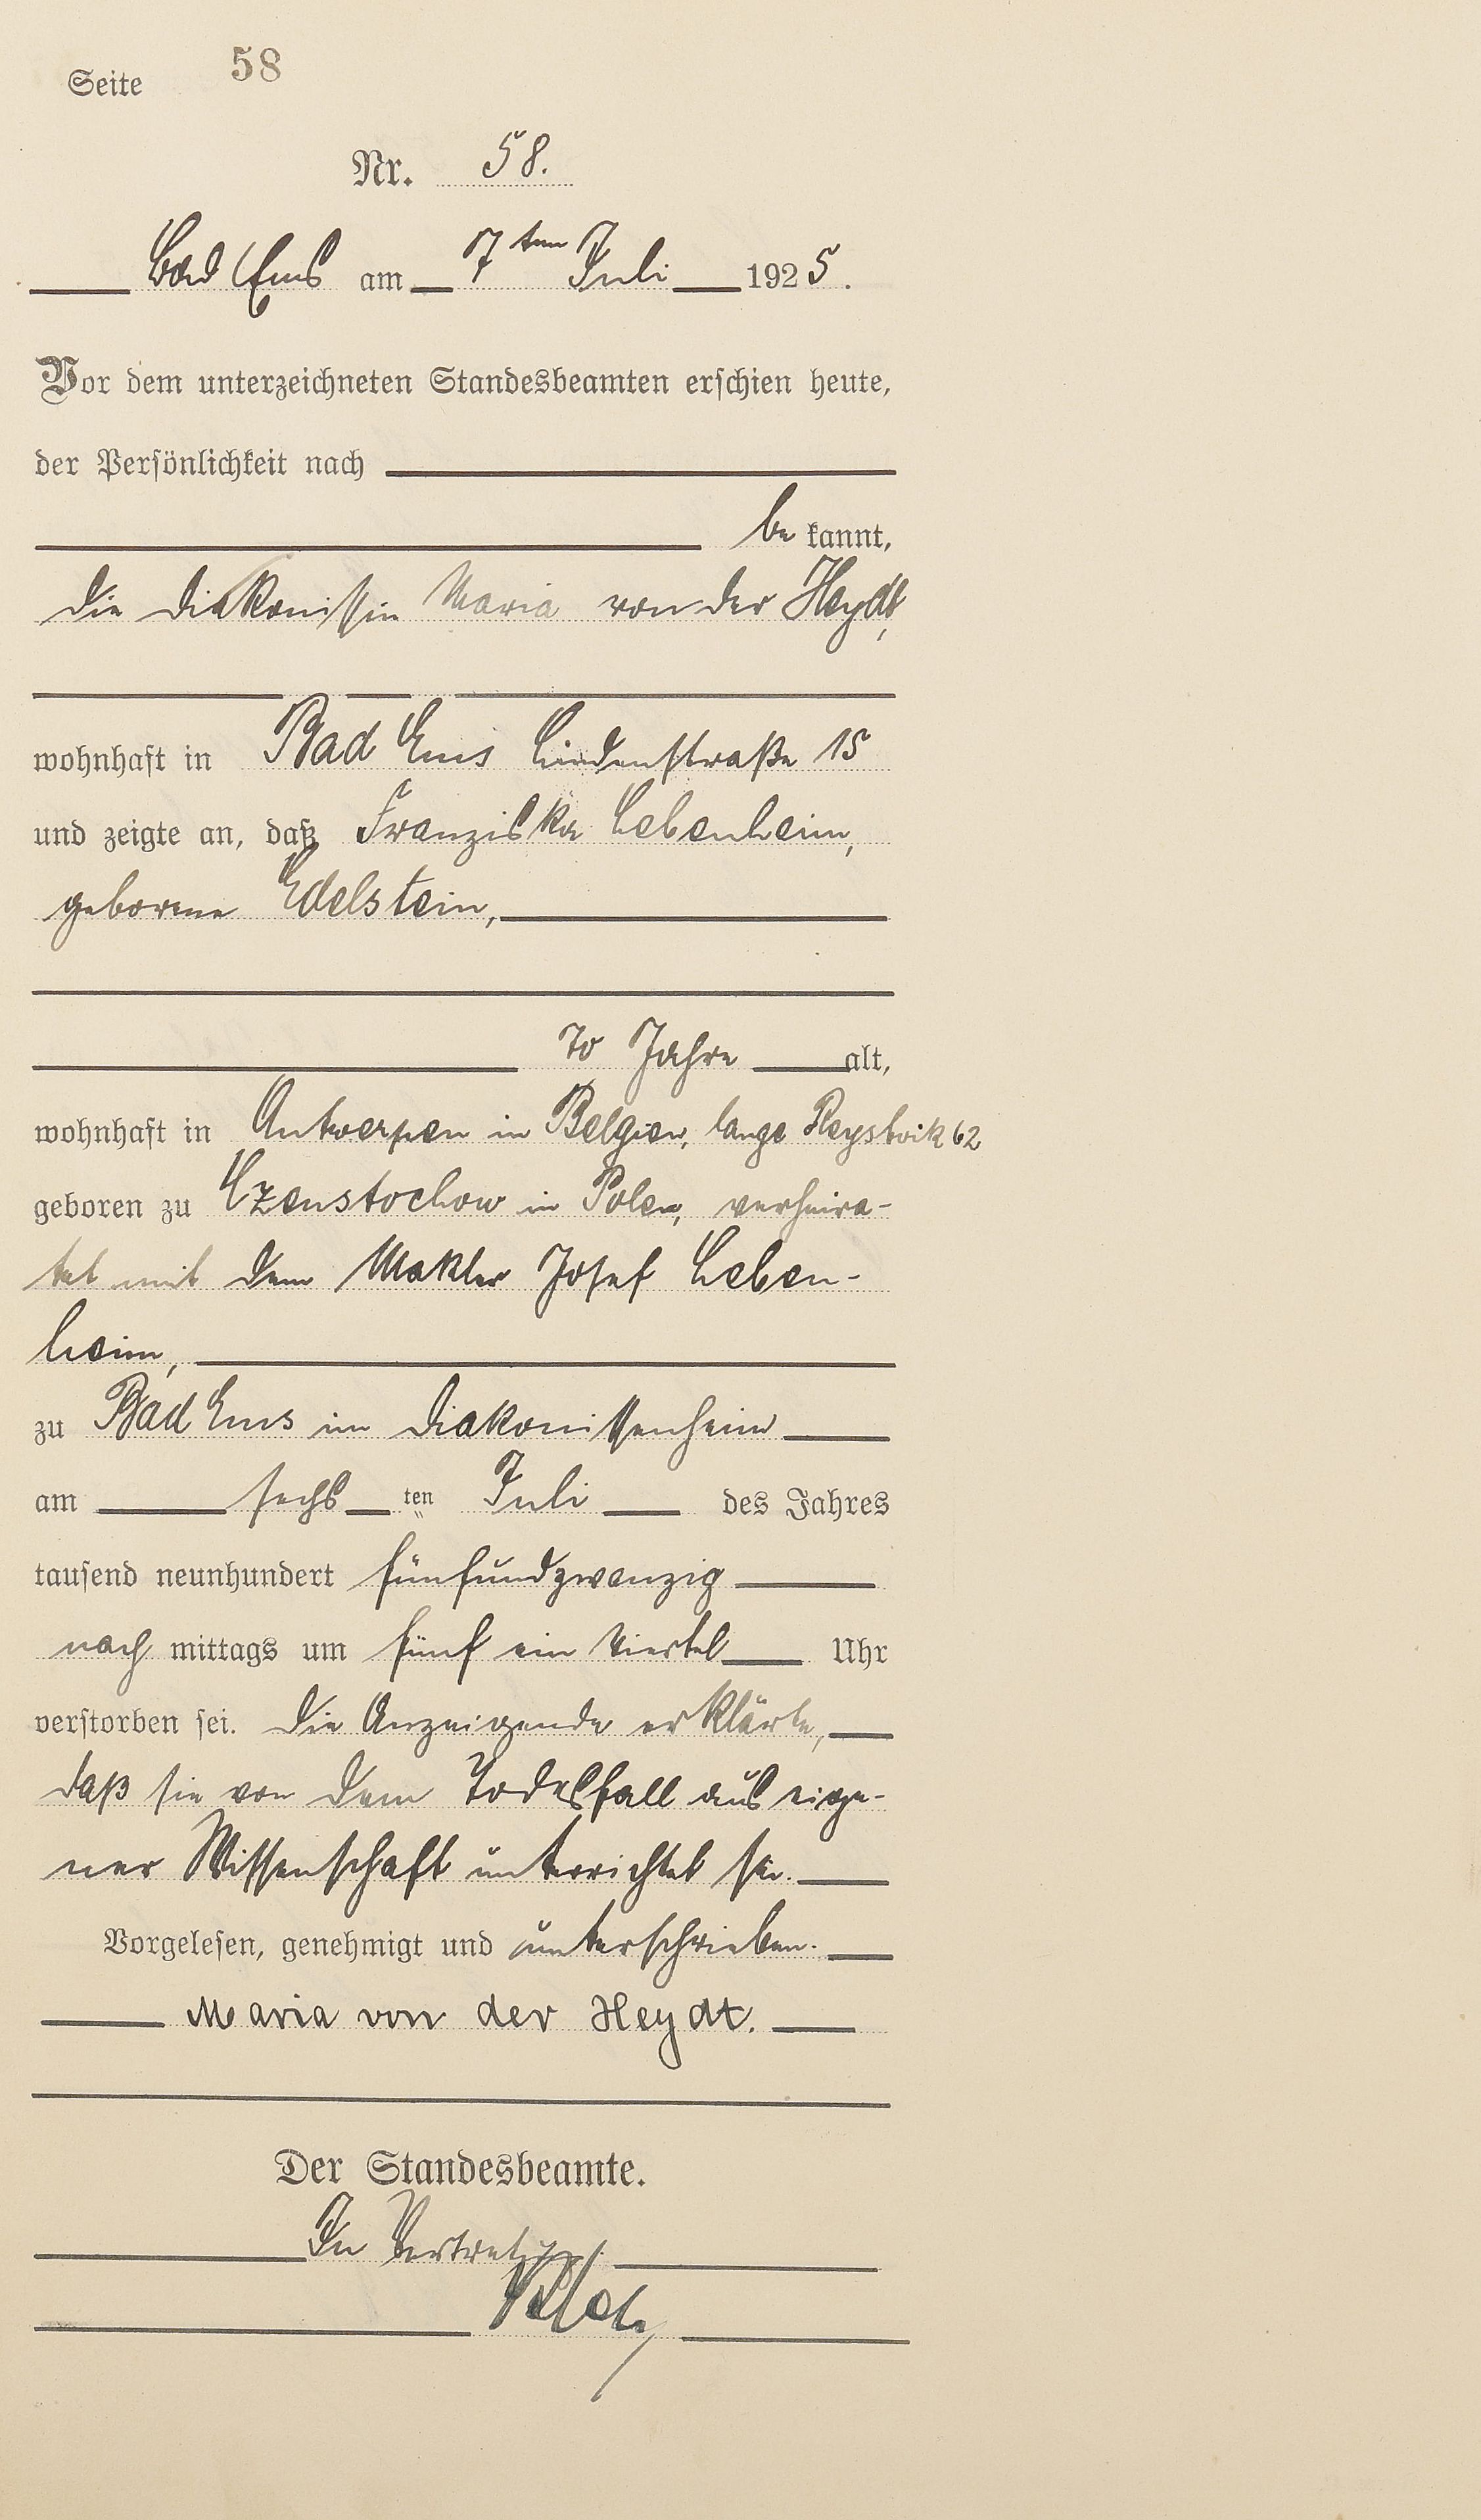 Seite 58
Nr. 58.
Bad Ems am 7ten Juli 1925.
Vor dem unterzeichneten Standesbeamten erschien heute,
der Persönlichkeit nach
be kannt,
die Diakonissin Maria von der Heydt,
wohnhaft in Bad Ems Lindenstraße 15
und zeigte an, daß Franziska Lebenheim,
geborene Edelstein,
70 Jahre alt,
wohnhaft in Antwerpen in Belgien, lange 62
geboren zu Czenstochow in Polen, verheira-
tet mit dem Makler Josef Leben-
heim,
zu Bad Ems im Diakonissenheim
am sechs ten Juli des Jahres
tausend neunhundert fünfundzwanzig
nach mittags um fünf ein Viertel Uhr
verstorben sei. Die Anzeigende erklärte,
daß sie von dem Todesfall aus eige-
ner Wissenschaft unterrichtet sei.
Vorgelesen, genehmigt und unterschrieben.
Maria von der Heydt.
Der Standesbeamte.
In Vertretung